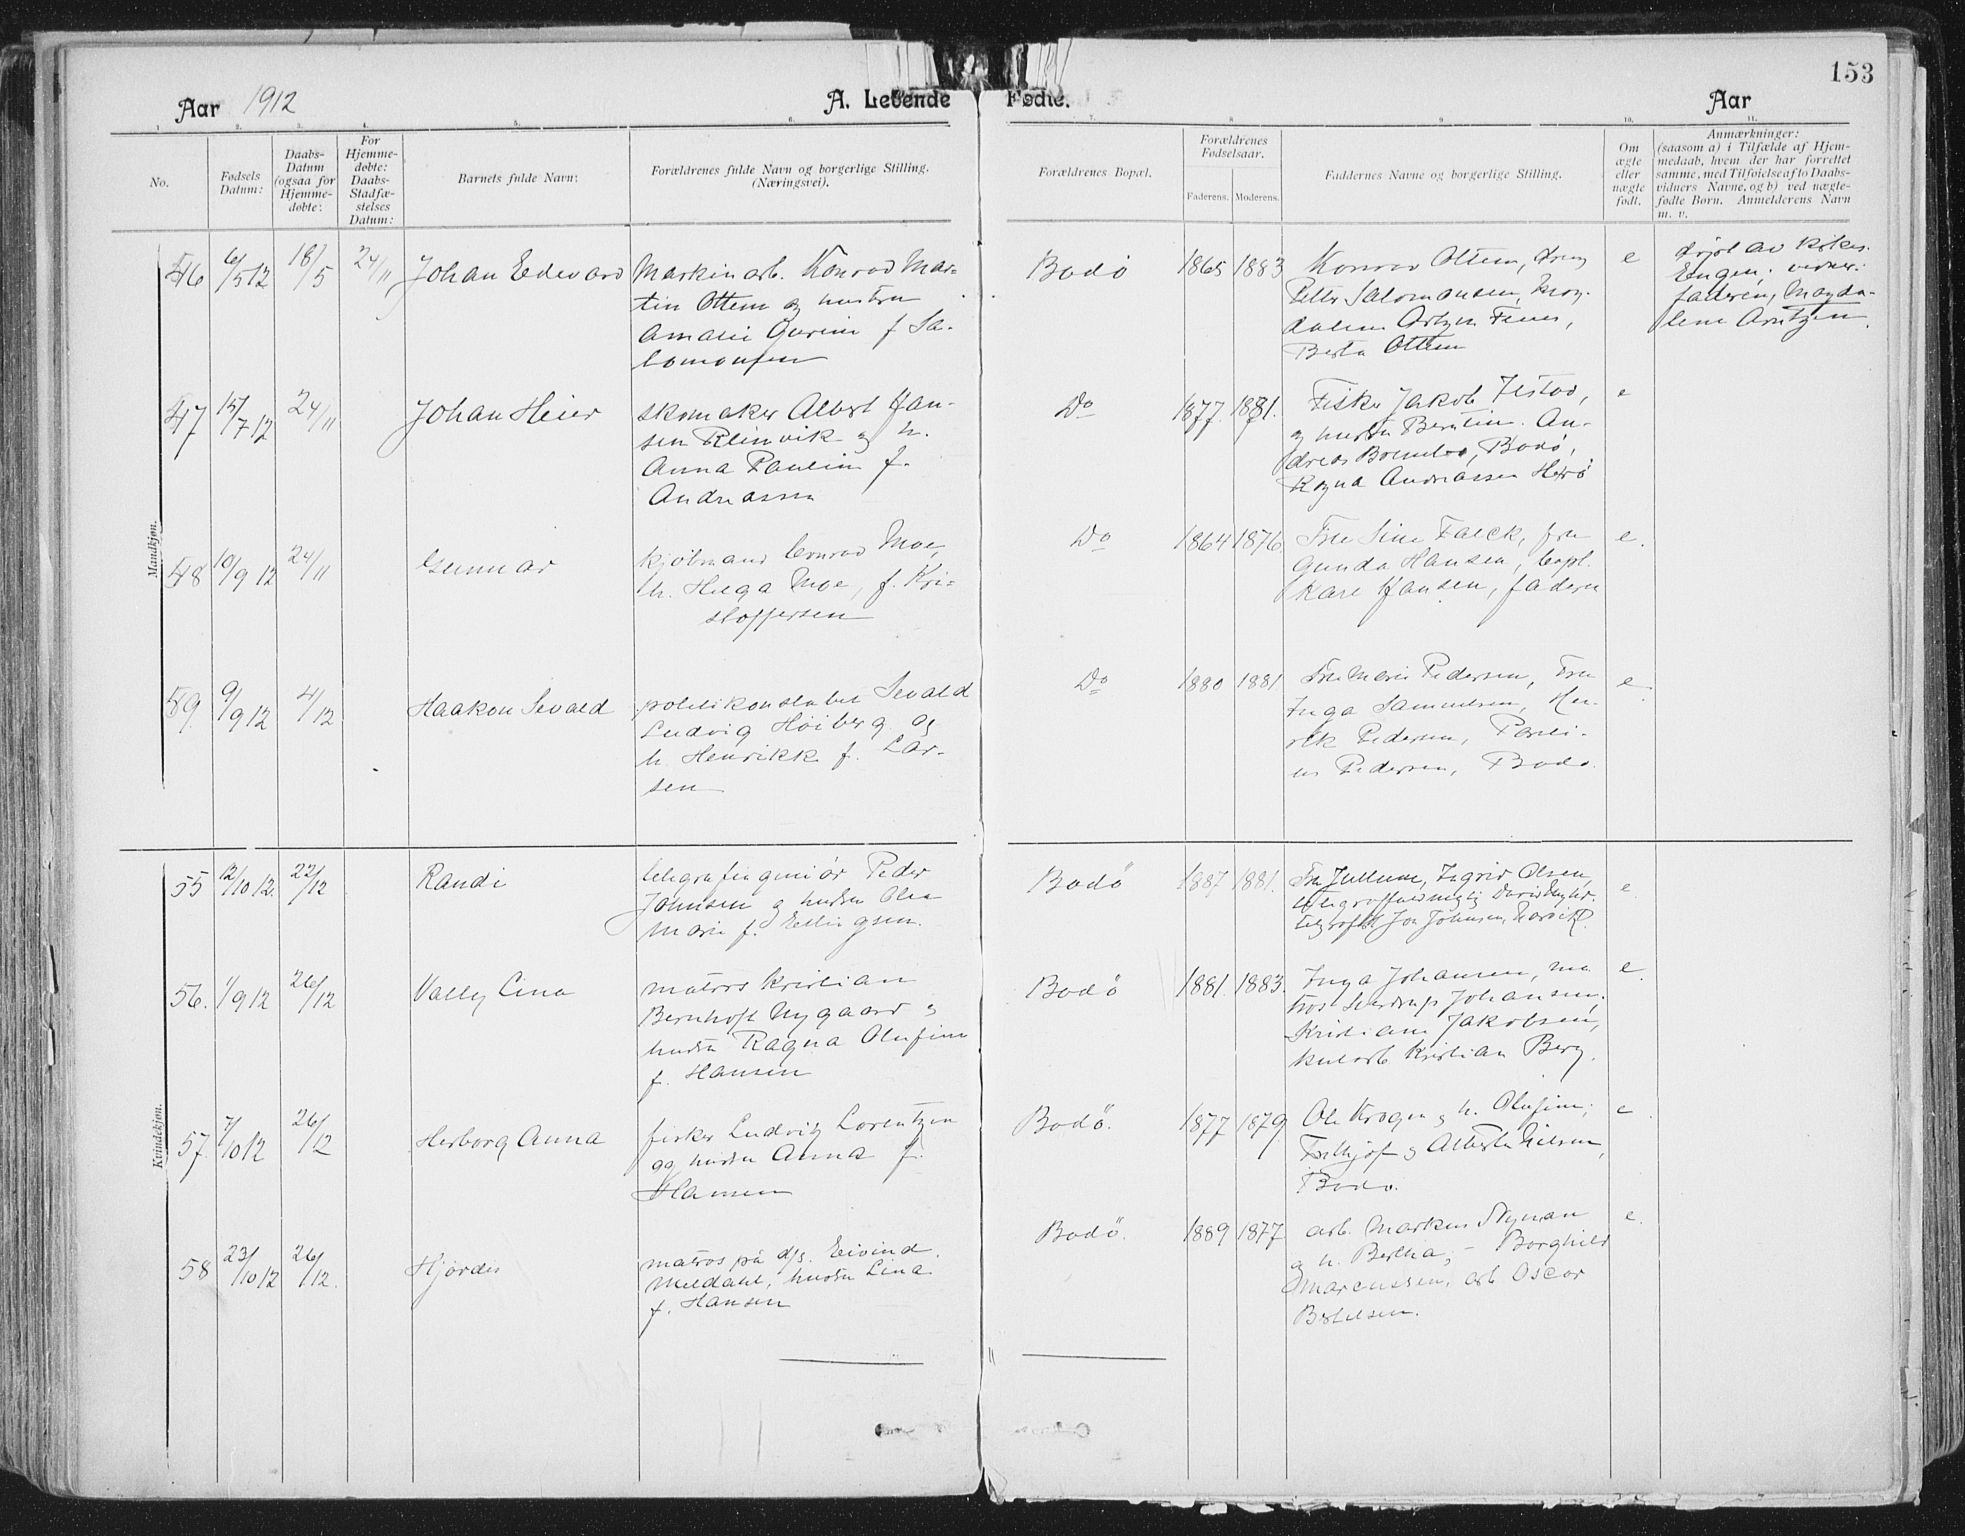 153
Aar 1912
A. Levende
Fødte.
Aar
1. 2. 3. 4. 5. 6.
7. 8 9 10. 11.
No.
Fødsels
Datum:
Daabs-
Datum
(ogsaa for
Hjemme-
døbte:
For
Hjemme-
døbte:
Daabs-
Stadfæ-
stelses
Datum:
Barnets fulde Navn:
Forældrenes fulde Navn og borgerlige Stilling.
(Næringsvei).
Forældrenes Bopæl.
Forældrenes
Fødselsaar.
Faderens. Moderens.
Faddernes Navne og borgerlige Stilling.
Om
ægte
eller
uægte
født.
Anmærkninger:
(saasom a) i Tilfælde af Hjem-
medaab, hvem der har forrettet
samme, med Tilføielse af to Daabs-
vidners Navne, og b) ved uægte-
fødte Børn. Anmelderens Navn
m. v.
Mandkjøn.
46 6/5 12 18/5 24/11 Johan Edevard
Konrad Mar-
tin Ottem og hustru
f Sa-
lomonsen
Bodø 1865 1883
Konrad Ottem,
Petter Salomonsen,
Berta Ottem
e
døpt av
faderen, Magda-
lene Arntzen.
47 15/7 12 24/11 Johan Heier
skomaker Albert Han-
sen Reinvik og h.
Anna Paulin f.
Andreassen
Do 1877. 1881.
Fisker Jakob
og hustru An-
dreas Bodø,
Andreassen Herø
e
48 10/9 12 24/11 Gunnar
Conrad Moe,
h. Helga Moe, f. Kri-
stoffersen
Do 1864 1876.
Fru Sine Falck, fru
Gunda Hansen,
Kare Hansen, faderen
e.
49. 9/9 12 4/12 Haakon Sevald
politikonstabel Sevald
Ludvig Høiberg og
h. Henrikke f. Lar-
sen
Do 1880 1881
Fru Marie Pedersen, Fru
Inga Samuelsen, Hen-
rik Pedersen,
Pedersen, Bodø.
e.
Kvindekjøn.
55 12/10 12. 22/12 Randi
telegrafingeniør Peder
Johnsen og hustru Olea
Marie f. Ellingsen.
Bodø 1887 1881.
Fru Jullum, Ingrid Olsen,
Jon Johnsen, Narvik.
e
56. 1/9 12 26/12 Vally Lina
matros Kristian
Bernhoft Nygaard og
hustru Ragna Olufine
f. Hansen
Bodø 1881. 1883.
Inga Johansen, ma
tros Johansen,
Kristiane Jakobsen,
kularb Kristian Berg.
e.
57. 7/10 12 26/12 Herborg Anna
fisker Ludvig Lorentzen
og hustru Anna f.
Hansen
Bodø. 1877 1879
Ole Krogen og h. Olufine,
og Alberte Nilsen,
Bodø.
e
58 23/10 12 26/12. Hjørdis
matros på d/s. Eivind
Meldahl, hustru Lina
f. Hansen
Bodø. 1889 1877
arb. Markus
og h. Bertha, - Borghild
Marcussen, arb Oscar
Bertelsen.
e.